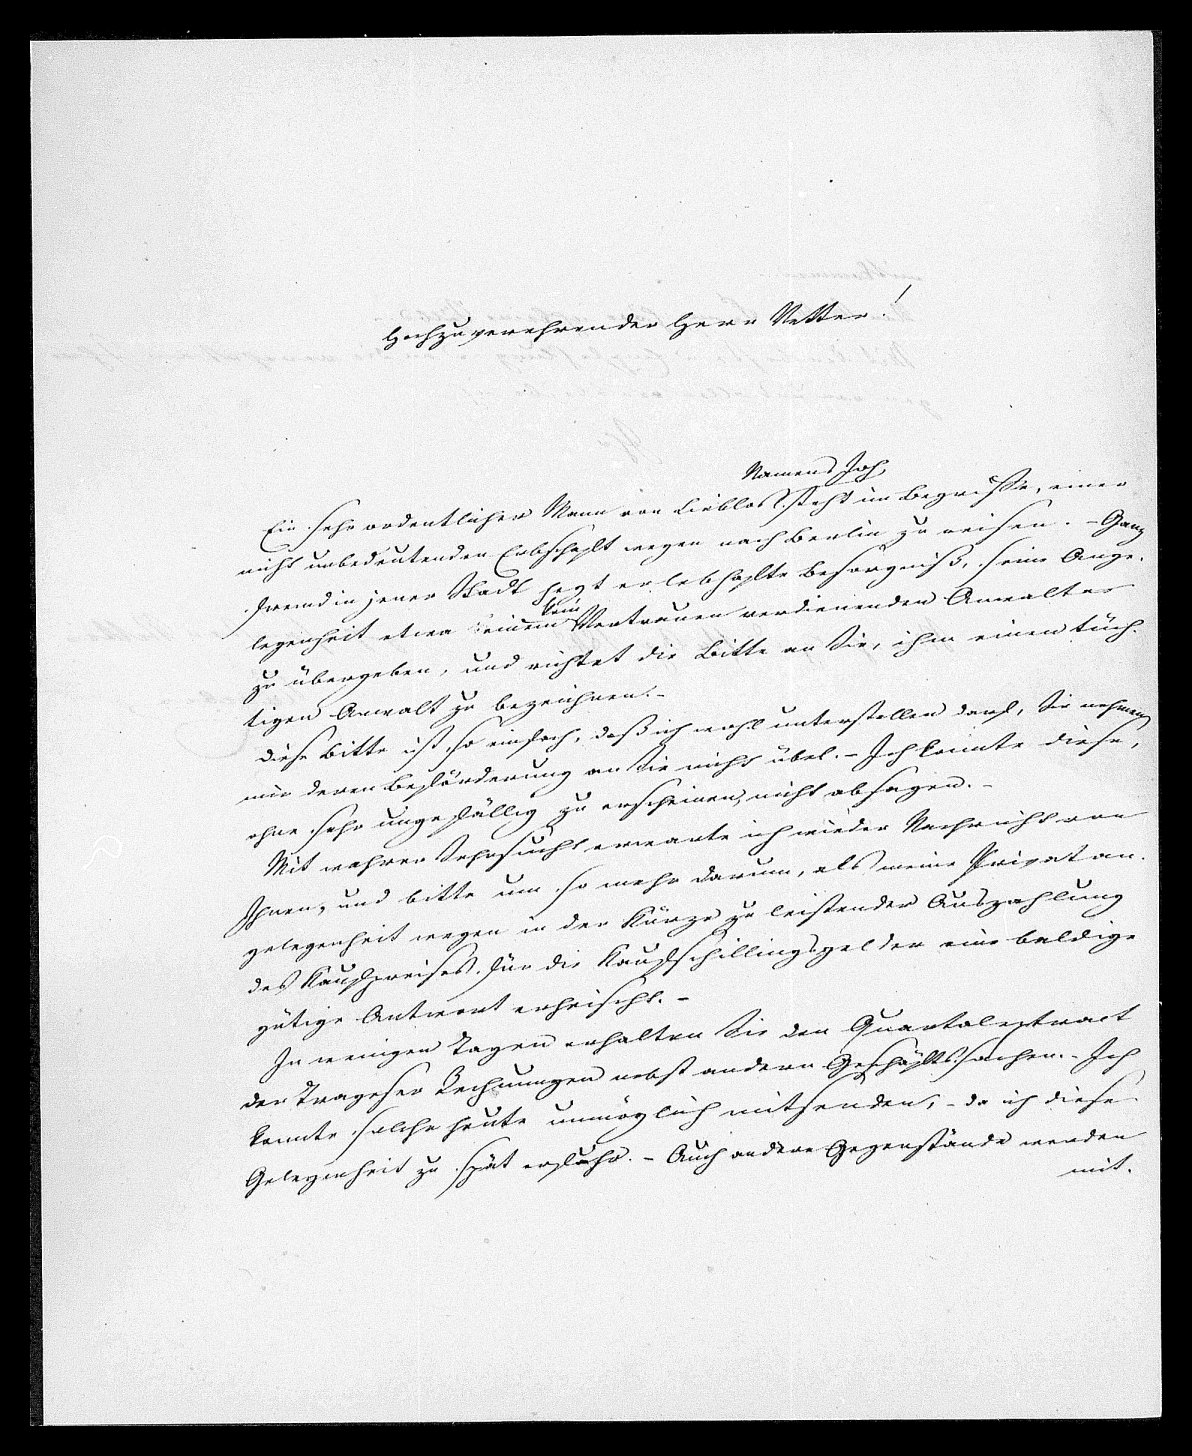 Hochzuverehrender Herr Vetter!
Namens Joh.
Ein sehr ordentlicher Mann von Lieblos steht im Begriffe, einer
nicht unbedeutenden Erbschaft wegen nach Berlin zu reisen. – Ganz
fremd in jener Stadt hegt er lebhafte Besorgniß, seine Ange-
legenheit etwa einem kein Vertrauen verdienenden Anwalte
zu übergeben, und richtet die Bitte an Sie, ihm einen tüch-
tigen Anwalt zu bezeichnen. –
Diese Bitte ist so einfach, daß ich wohl unterstellen darf, Sie nehmen
mir deren Beförderung an Sie nicht übel. – Ich konnte diese,
ohne sehr ungefällig zu erscheinen, nicht absagen. –
Mit wahrer Sehnsucht erwarte ich wieder Nachricht von
Ihnen, und bitte um so mehr darum, als meine Privatan-
gelegenheit wegen in der Kürze zu leistender Auszahlung
des Kaufpreises für die Kaufschillingsgelder eine baldige
gütige Antwort erheischt. –
In wenigen Tagen erhalten Sie den Quartalextract
der Trageser Rechnungen nebst andern Geschäftssachen. – Ich
konnte solche heute unmöglich mitsenden, – da ich diese
Gelegenheit zu spät erfuhr. – Auch andere Gegenstände werden
mit-